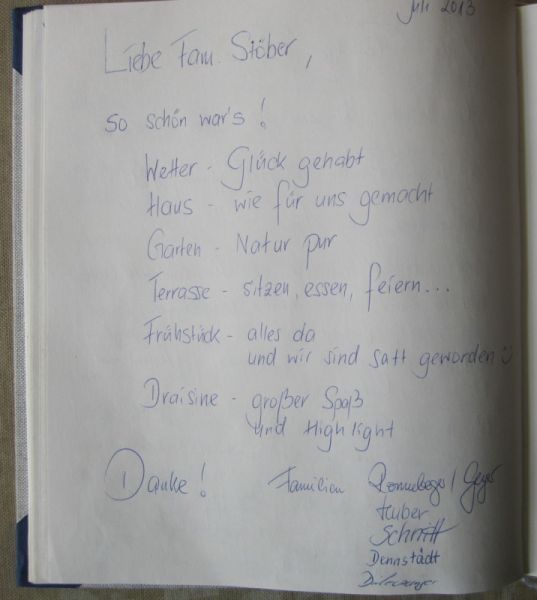 Juli 2013
Liebe Fam. Stöber,
so schön war's!
Wetter - Glück gehabt
Haus - wie für uns gemacht
Garten - Natur pur
Terrasse - sitzen, essen, feiern...
Frühstück - alles da
und wir sind satt geworden
Draisine - großer Spaß
und Highlight
Danke! Familien / Geyer
Huber
Schmitt
Dennstädt